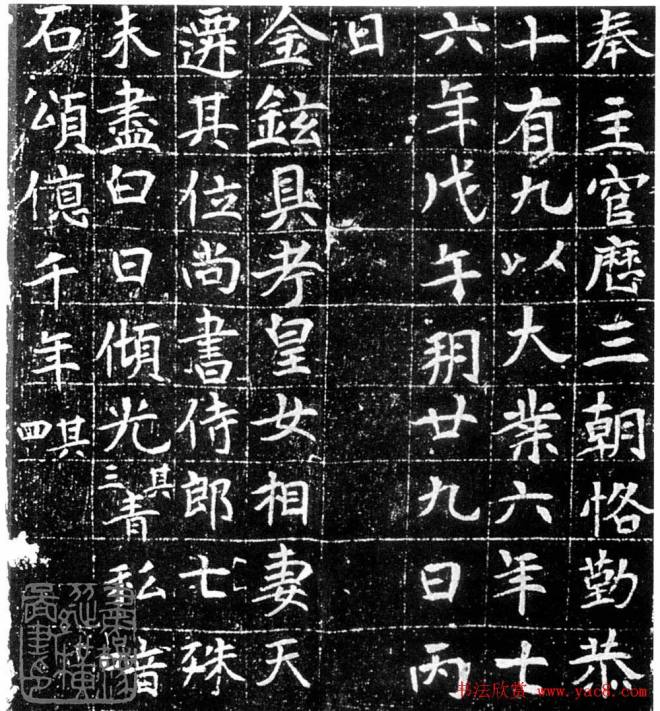 奉主官歷三朝恪勤恭
十有九以大業六年十
六年戊午朔廿九日丙
日
金鉉具考皇女相妻天
遷其位尚書侍郎七殊
未盡白日傾光其三青
石頌億千年其四
书法欣赏 www.yac8.com